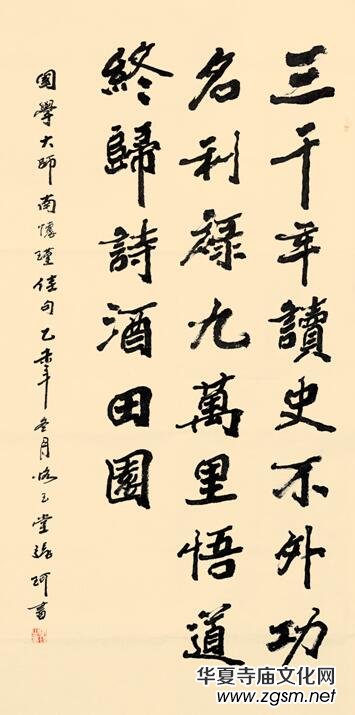 三千年讀史不外功
名利祿九萬里悟道
終歸詩酒田園
國學大師南懷瑾佳句乙未年冬月 堂 珂書
华夏寺庙文化网
www.zgsm.net